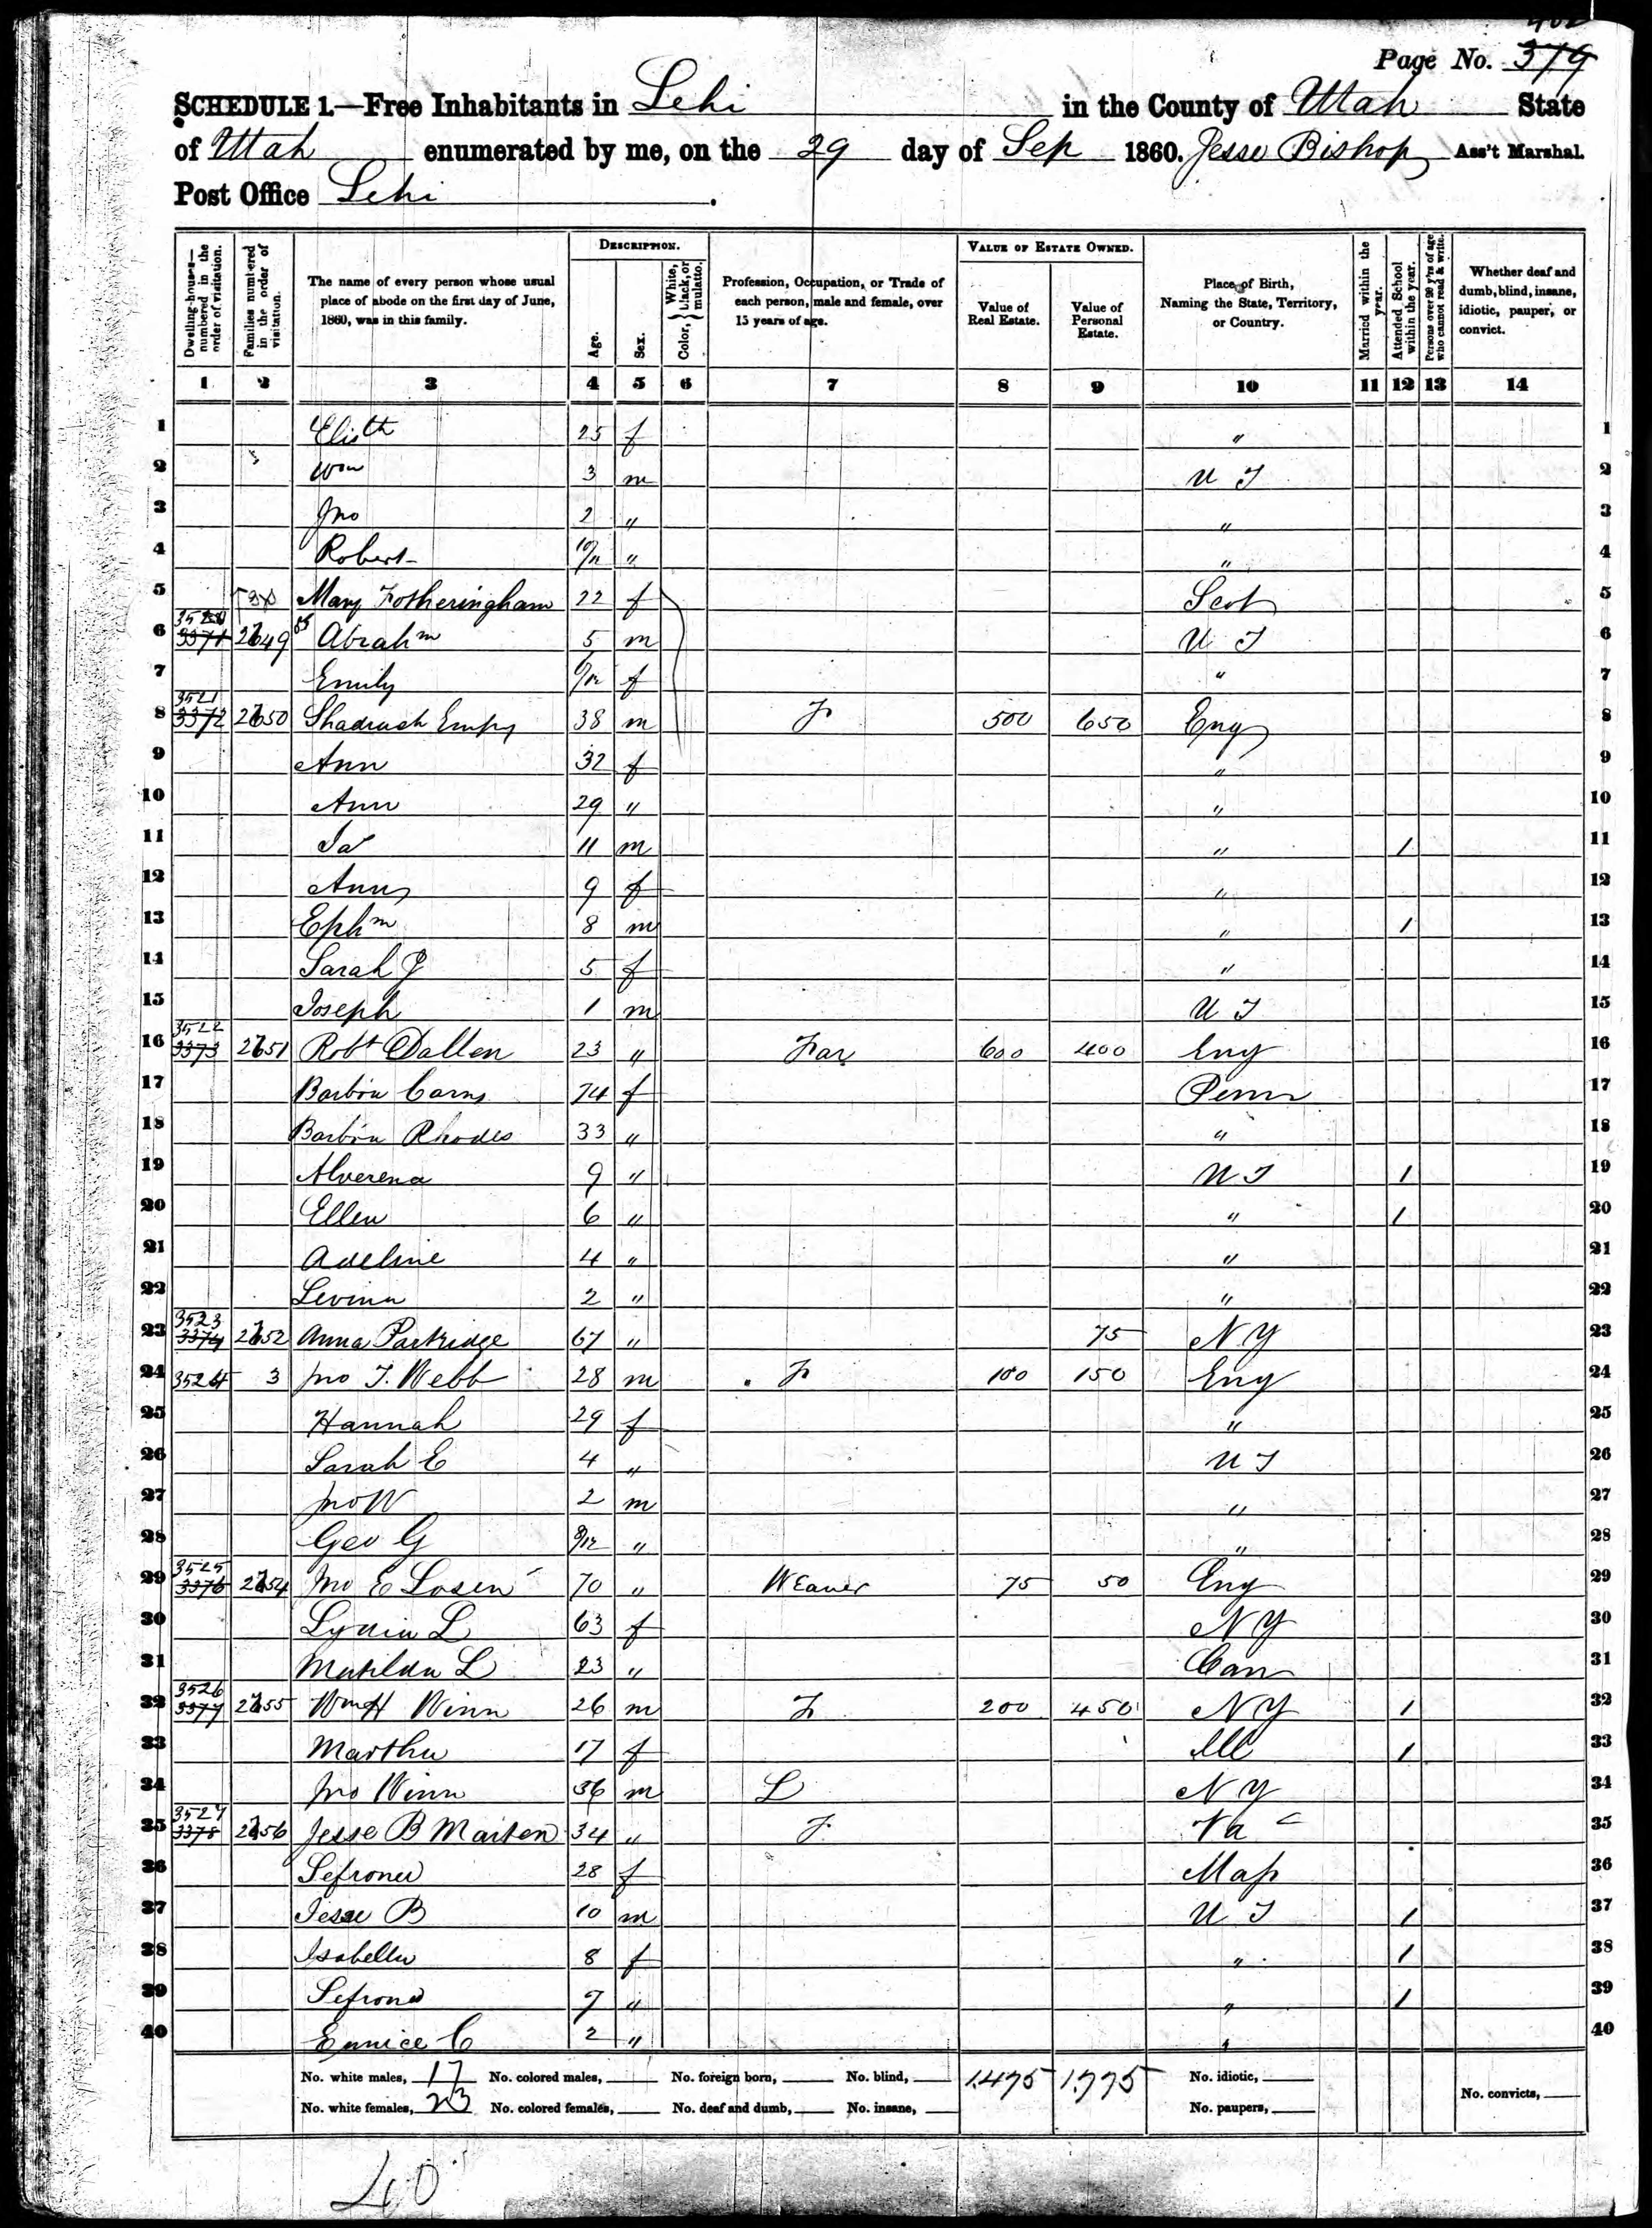 402
Page No. 379
SCHEDULE 1.—Free Inhabitants in Lehi in the County of Utah State
of Utah enumerated by me, on the 29 day of Sep 1860. Jesse Bishop Ass't Marshal.
Post Office Lehi .
Dwelling-houses—numbered in the order of visitation. Families numbered in the order of visitation. The name of every person whose usual place of abode on the first day of June, 1860, was in this family. DESCRIPTION. Age. Sex. Color, { White, black, or mulatto. Profession, Occupation, or Trade of each person, male and female, over 15 years of age. VALUE OF ESTATE OWNED. Value of Real Estate. Value of Personal Estate. Place of Birth, Naming the State, Territory, or Country. Married within the year. Attended School within the year. Persons over 20 y'rs of age who cannot read & write. Whether deaf and dumb, blind, insane, idiotic, pauper, or convict.
1 2 3 4 5 6 7 8 9 10 11 12 13 14
1 Elisth 25 f " 1
2 Wm 3 m U T 2
3 Jno 2 " " 3
4 Robert 10/12 " " 4
5 Mary Fotheringham 22 f Scot 5
6 3520 3371 2649 Abrahm 5 m U T 6
7 Emily 6/12 f " 7
8 3521 3372 2650 Shadrach Empy 38 m F 500 650 Eng 8
9 Ann 32 f " 9
10 Ann 29 " " 10
11 Ja 11 m " 1 11
12 Ann 9 f " 12
13 Ephm 8 m " 1 13
14 Sarah J 5 f " 14
15 Joseph 1 m U T 15
16 3522 3373 2651 Robt Dallen 23 " Far 600 400 Eng 16
17 Barbra Carns 74 f Penn 17
18 Barbra Rhodes 33 " " 18
19 Alverena 9 " U T 1 19
20 Ellen 6 " " 1 20
21 Adeline 4 " " 21
22 Levina 2 " " 22
23 3523 3374 2652 Anna Partridge 67 " 75 N Y 23
24 3524 3 Jno T. Webb 28 m F 100 150 Eng 24
25 Hannah 29 f " 25
26 Sarah E 4 " U T 26
27 Jno W 2 m " 27
28 Geo G 8/12 " " 28
29 3525 3376 2654 Jno E Losen 70 " Weaver 75 50 Eng 29
30 Lydia L 63 f N Y 30
31 Matilda L 23 " Can 31
32 3526 3377 2655 Wm H Winn 26 m F 200 450 N Y 1 32
33 Martha 17 f Ill 1 33
34 Jno Winn 36 m L N Y 34
35 3527 3378 2656 Jesse B Marten 34 " F Va 35
36 Sefrona 28 f Mass 36
37 Jesse B 10 m U T 1 37
38 Isabella 8 f " 1 38
39 Sefrona 7 " " 1 39
40 Eunice C 2 " " 40
No. white males, 17 No. colored males, No. foreign born, No. blind, 1475 1775 No. idiotic,
No. white females, 23 No. colored females, No. deaf and dumb, No. insane, No. paupers, No. convicts,
40